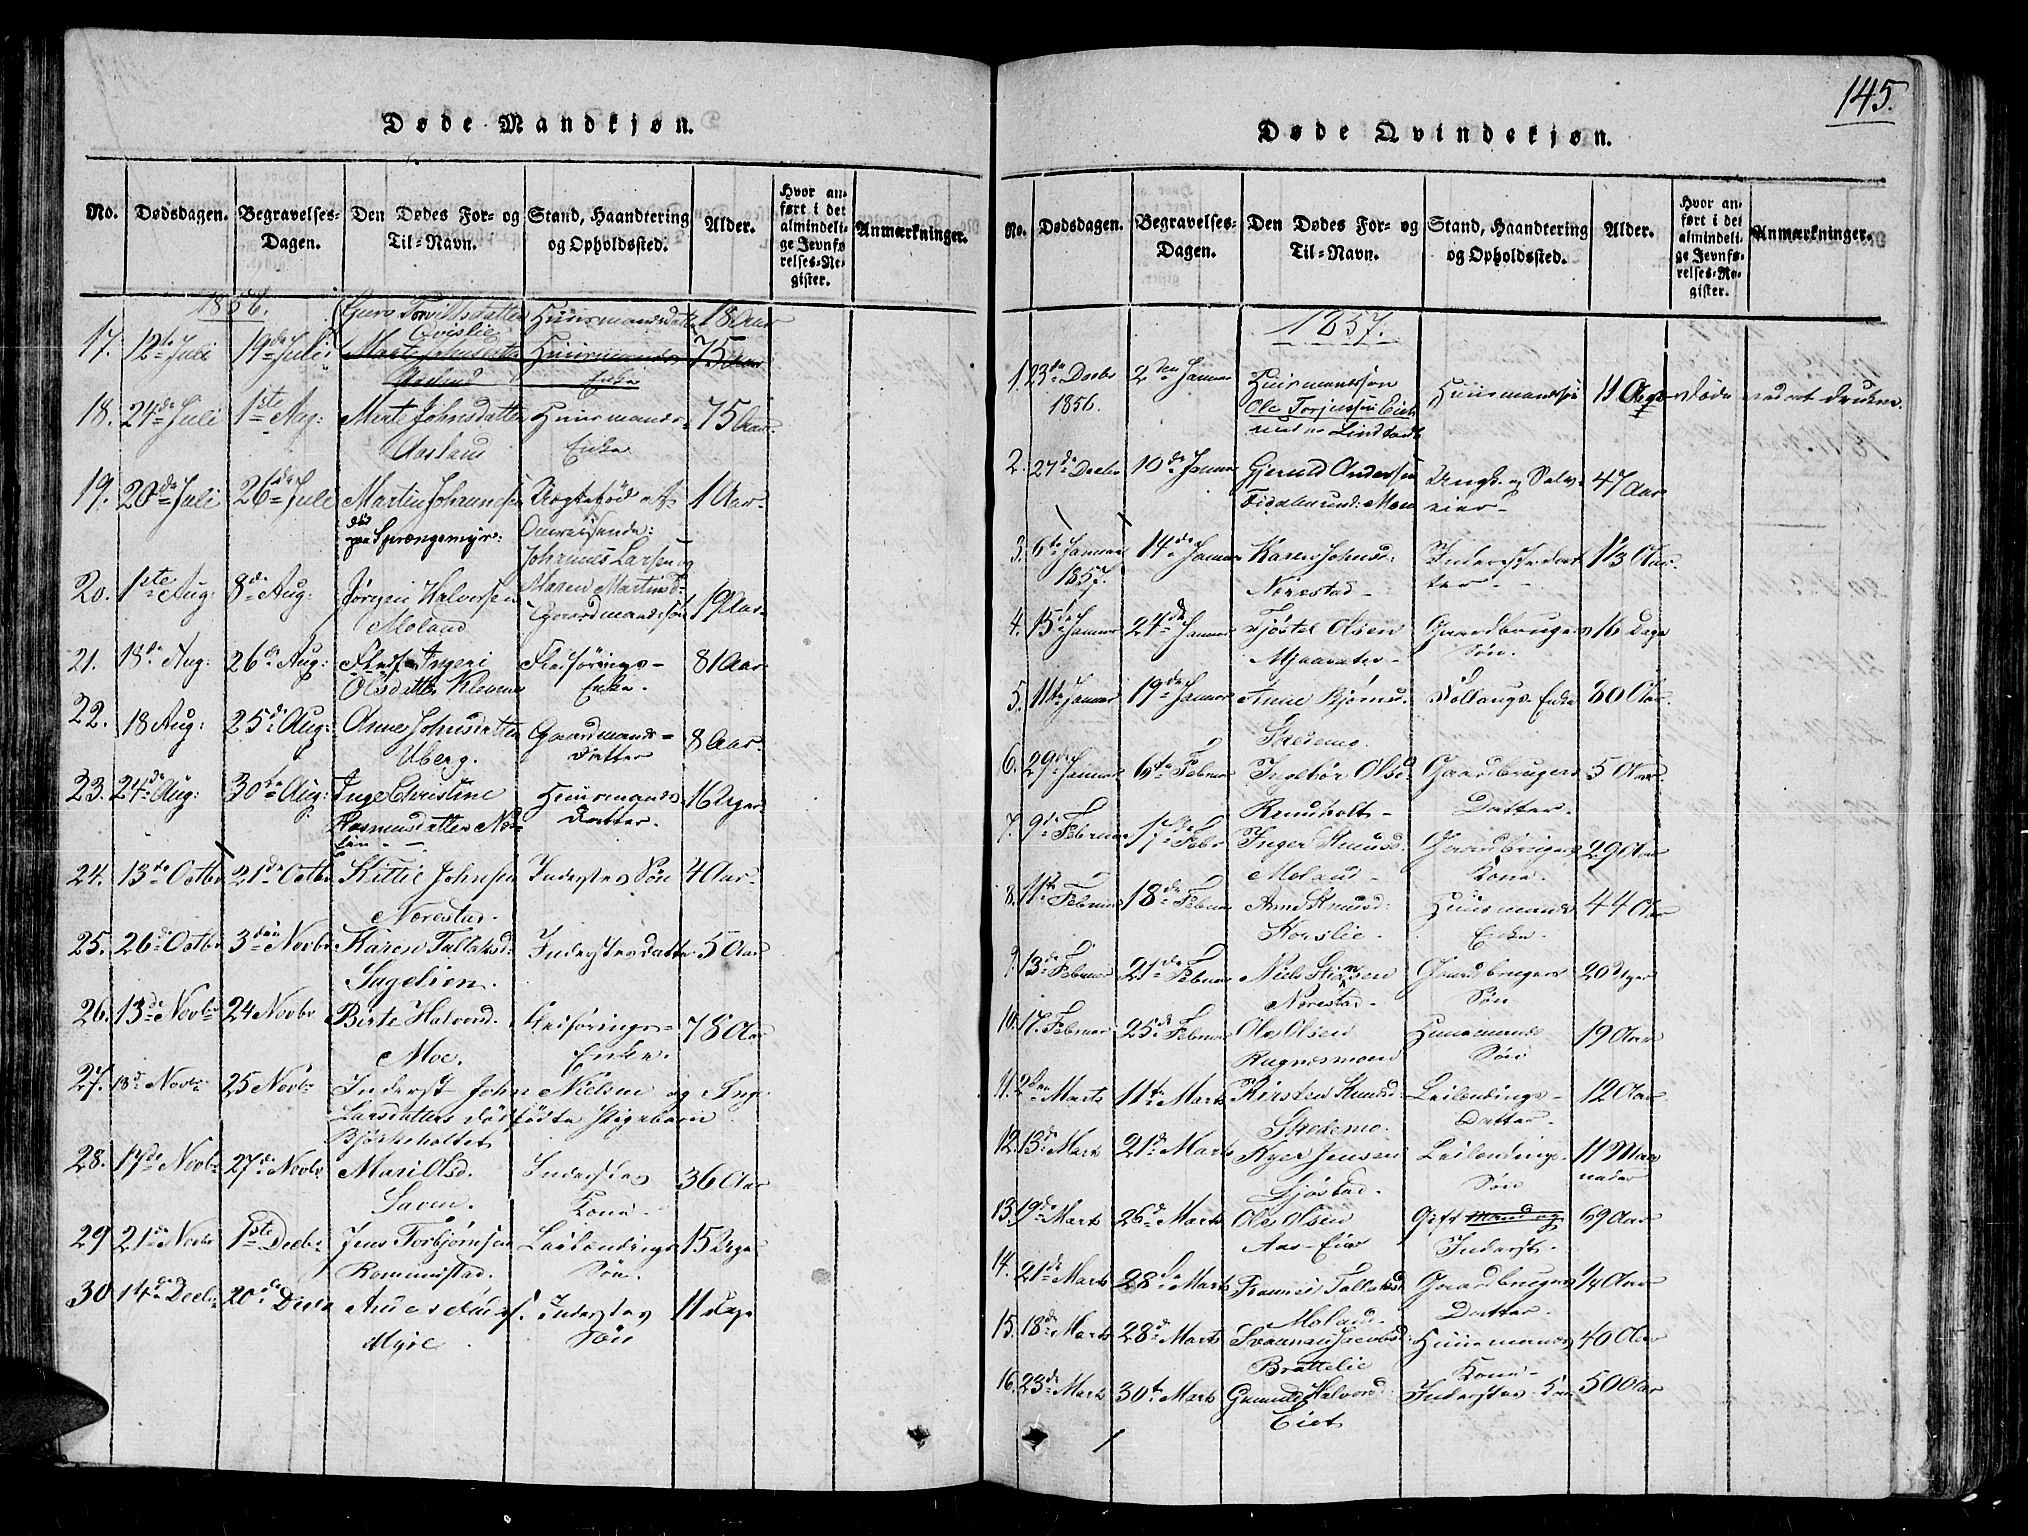 145.
Døde Mandkjøn.
No. Dødsdagen. Begravelses-Dagen. Den Dødes For- og Til-Navn. Stand, Haandtering og Opholdssted. Alder. Hvor anført i det almindelige Jevnførelses-Register. Anmærkninger.
1856.
Torvildsdatter Huusmandsdatter 18 Aar
Qvislie
17. 12te Juli 19de Juli Marte Johnsdatter Huusmands 75 Aar
Aasland Enke
18. 24de Juli 1ste Aug: Marte Johnsdatter Huusmands- 75 Aar
Aasland Enke
19. 20de Juli 26de Juli Martin Johannsen Uægtefød af 1 Aar
død paa Sprængemyr: Omreisende:
Johannes Larsen og
Maren Martinsd
20. 1ste Aug: 8de Aug: Jørgen Halvorsen Gaardmandssøn 19 Aar
Moland
21. 18de Aug: 26de Aug: Ingeri Fledførings- 81 Aar
Olsdatter Enke.
22. 18 Aug: 25de Aug: Anne Johnsdatter Gaardmands- 8 Aar.
Uberg. Datter
23. 24de Aug: 30te Aug: Inge Christine Huusmands 16 Uger
Rasmusdatter Datter.
24. 13de Octbr 21de Octbr Kittil Johnsen Inderstes Søn 4 Aar
Nærestad.
25. 26de Octbr 3die Novbr Karen Tallaksd: Inderstes datter 5 Aar
Sagelien.
26. 13de Novbr 24 Novbr Birte Halvorsd. Ledførings- 78 Aar
Moe. Enke.
27. 18de Novbr 25 Novbr Inderst John Nielsen og Inge
Larsdatters dødfødte Pigebarn
Bjørkeholtet
28. 17de Novbr 27de Novbr Mari Olsd. Inderstes 36 Aar
Saven. Kone.
29 21de Novbr 1ste Decbr Jens Torbjørnsen Leilændings 15 Uger
Rommestad. Søn.
30 14de Decbr 20de Decbr Inderstes 11 Dage
Myre Søn
Døde Qvindekjøn.
No. Dødsdagen. Begravelses-Dagen. Den Dødes For- og Til-Navn. Stand, Haandtering og Opholdssted. Alder. Hvor anført i det almindelige Jevnførelses-Register. Anmærkninger.
1857.
1. 23de Decbr 2den Januar Huusmandssøn Huusmandssøn 11 Aar døde ved at drukne.
1856. Ole Torjussen Eiet
2. 27de Decbr 10de Januar Gjerulf Andersen Ungk. og Selv- 47 Aar
eier
3. 6te Januar 14de Januar Karen Johnsd: Inderstedat- 13 Aar
1857. Nærestad ter
4. 15de Januar 24de Januar Tjøstel Olsen Gaardbrugers 16 Dage
Mjaavater Søn.
5. 11te Januar 19de Januar Anne Bjørnsd. Enke 80 Aar
Skedemo.
6. 29de Januar 6te Februar Ingebor Olsd. Gaardbrugers 5 Aar
Datter.
7. 9de Februar 17de Febr Inger Knudsd. Gaardbrugers 29 Aar
Moland Kone.
8. 11te Februar 18de Februar Anne Knudsd: Huusmands 44 Aar
Korslie. Enke.
9. 13de Februar 21de Februar Niels Stiansen Gaardbrugers 20 Uger
Nærestad Søn
10. 17. Februar 25de Februar Ole Olsen Huusmands 19 Aar
Ragnesmoen Søn
11. 2den Marts 11te Marts Kirsten Knudsd: Leilændings- 12 Aar
Skedemo. Datter.
12. 13de Marts 21de Marts Jensen Leilændings 11 Maa-
Sjøstad. Søn neder
13. 19de Marts 26de Marts Ole Olsen Gift Mand og 69 Aar
Aas-Eier Inderst.
14. 21de Marts 28de Marts Tallaksd: Gaardbrugers 1/4 Aar
Moland Datter.
15. 18de Marts 28de Marts Jacobsd: Huusmands 40 Aar
Brattelie Kone
16. 23de Marts 30te Marts Gunnild Halvorsd: Inderstes Kone 50 Aar
Eiet